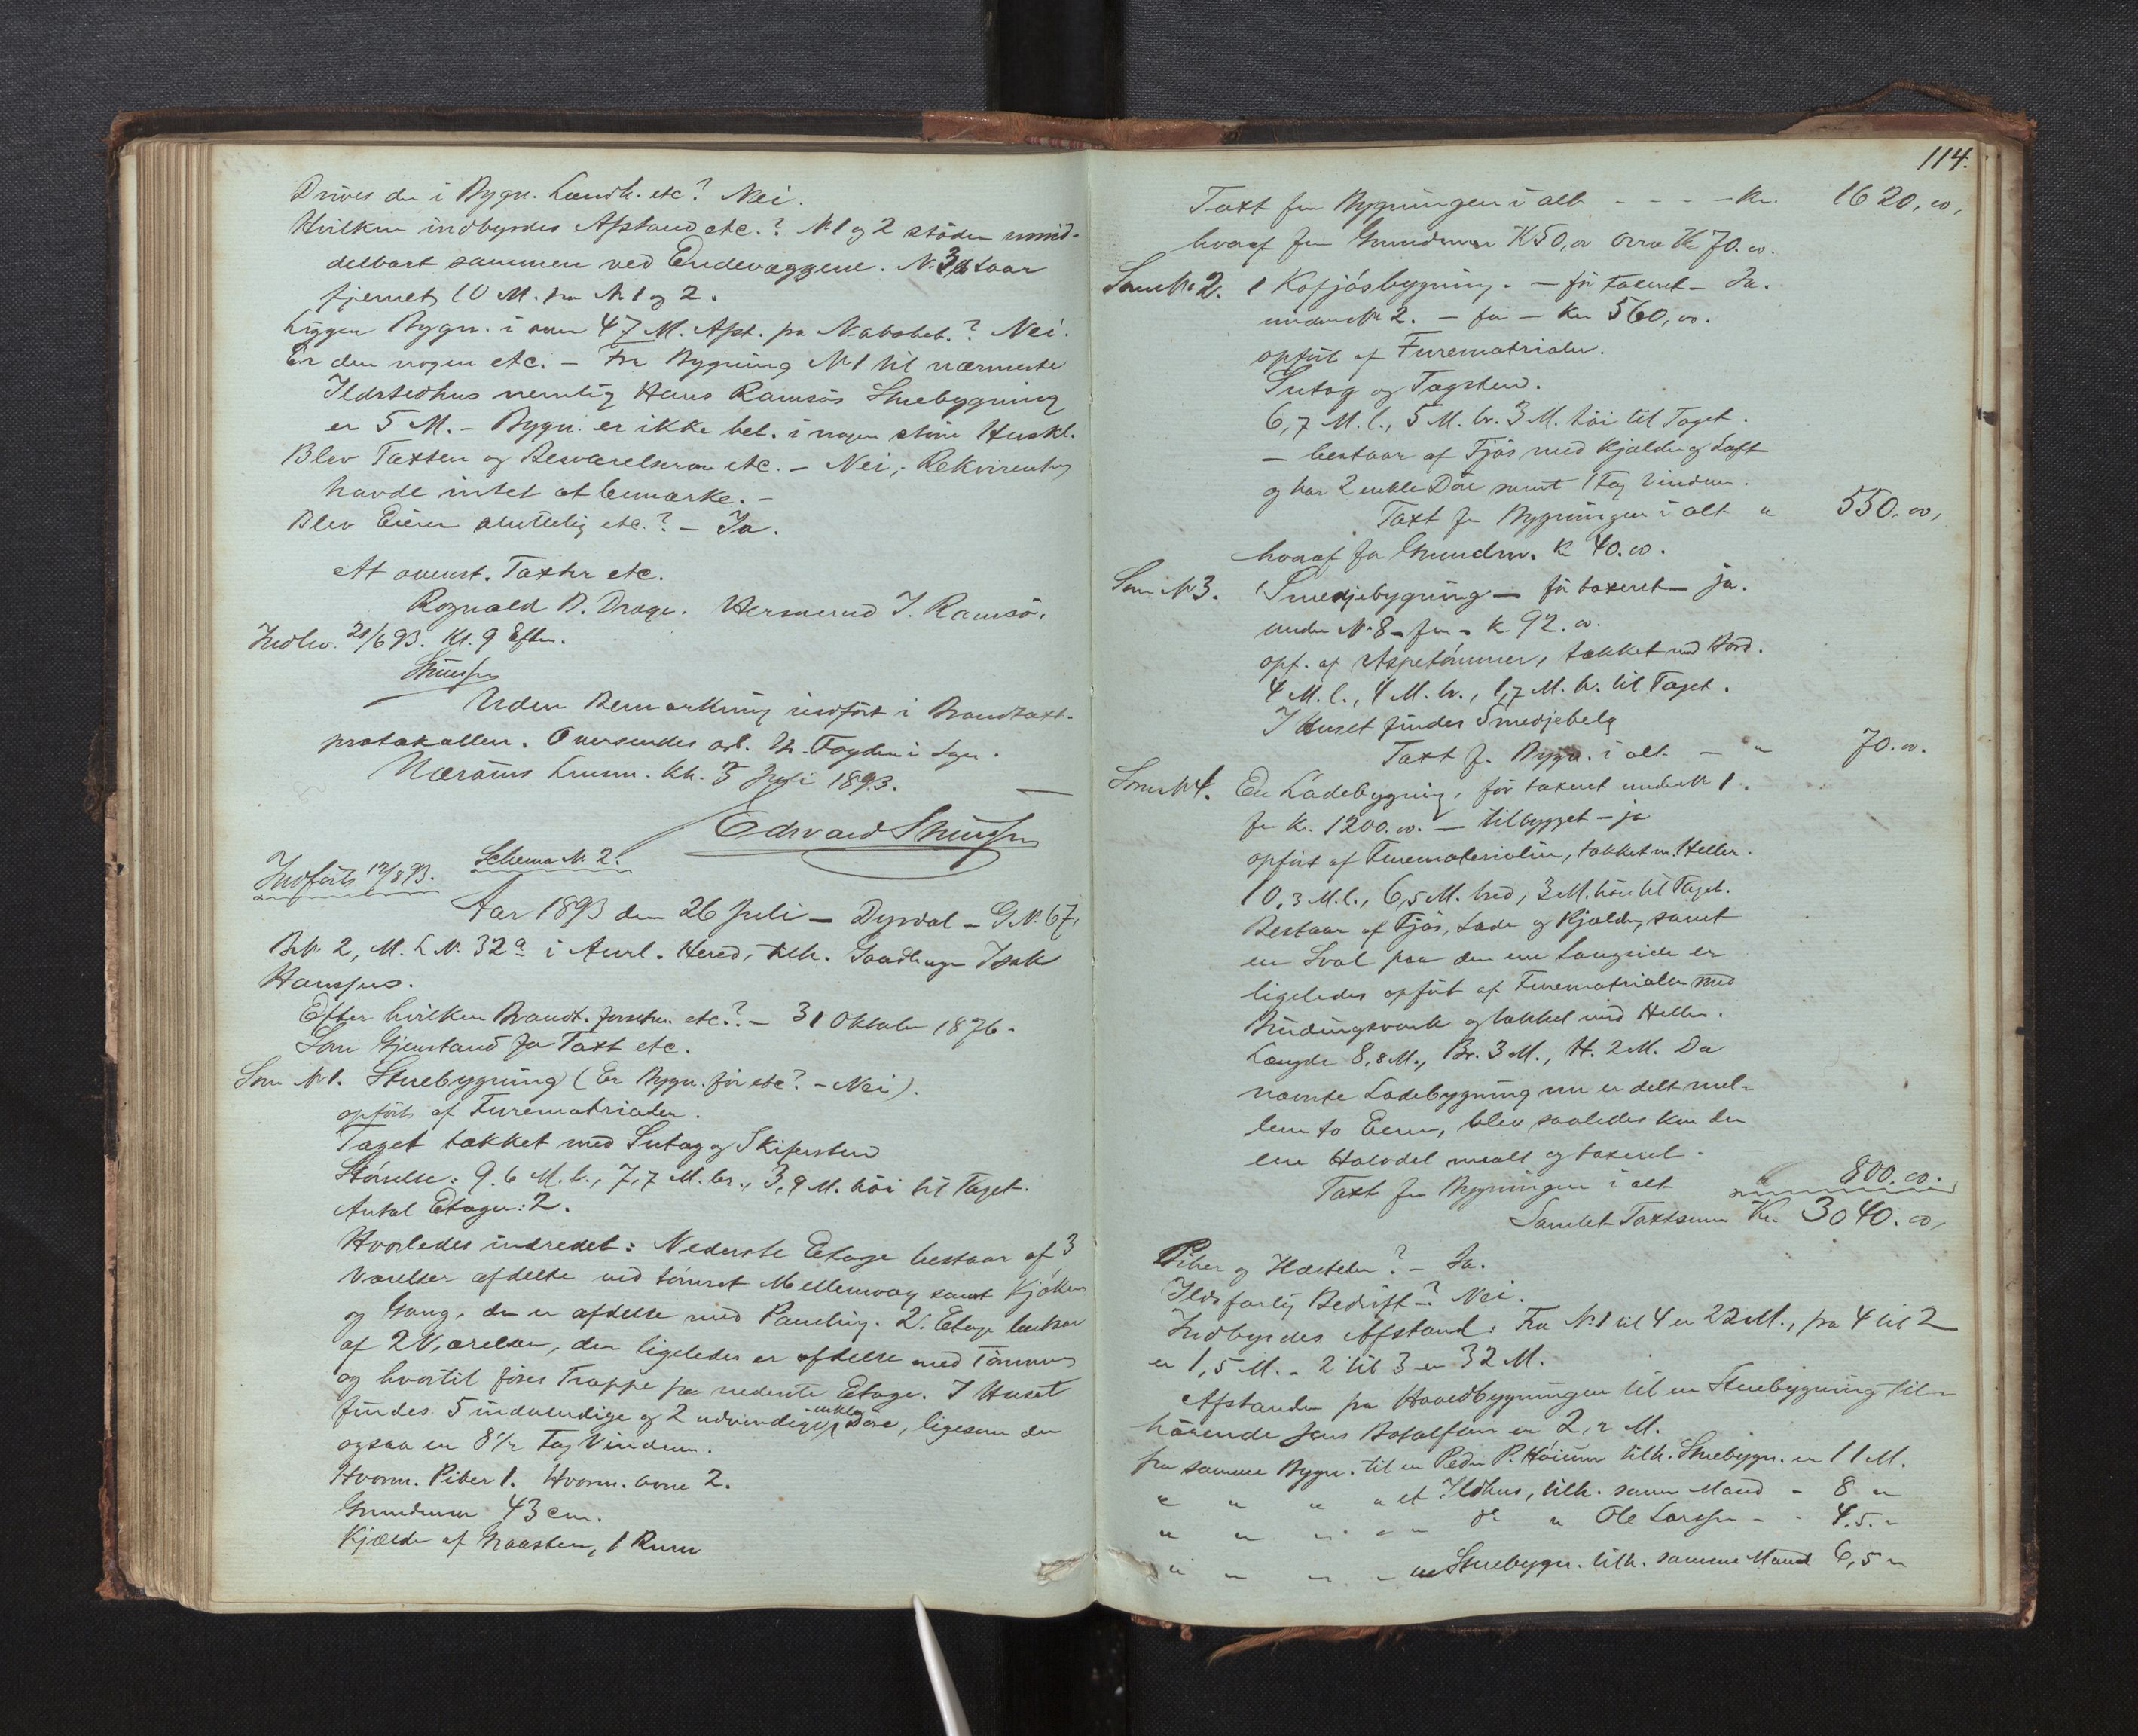 Drives der i Bygn. Landh. etc? Nei.
Hvilken indbyrdes Afstand etc.? N 1 og 2 støder umid-
delbart sammen ved Endevæggene. N. 3 staar
fjernet 10 M. fra N 1 og 2.
Ligger Bygn. i over 47 M. Afst. fra Nabobeb.? Nei.
Er der nogen etc. – Fra Bygning N 1 til nærmeste
Ildstedhus nemlig Hans Ramsøs Stuebygning
er 5 M. – Bygn. er ikke bel. i nogen større Huskl.
Blev Taxten og Besvarelserne etc. – Nei; Rekvirenten
havde intet at bemærke. –
Blev Eieren sluttelig etc.? – Ja.
At ovenst. Taxter etc.
Rognald B. Drage. Hermund J. Ramsø.
Indlev. 21/6 93. Kl. 9 Efter.
Uden Bemærkning indført i Brandtaxt-
protokollen. Oversendes ærb. Hr. Fogden i Sogn.
Nærøens Lensm. Kt. 3 Juli 1893.
Edvard
Indført 12/8 93. Schema N 2.
Aar 1893 den 26 Juli – Dyrdal – G.N. 67,
B.N. 2, M. L N. 32a i Aurl. Hered, tilh. Gaardbruger Isak
Hansen.
Efter hvilken Brandt. forretn. etc.? – 31 Oktober 1876.
Som Gjenstand for Taxt etc.
Som N 1. Stuebygning (Er Bygn. før etc? – Nei).
opført af Furematrialer.
Taget tækket med Sutag og Skifersten
Størrelse: 9.6 M. l., 7,7 M. br., 3,9 M. høi til Taget.
Antal Etager: 2.
Hvorledes indredet: Nederste Etage bestaar af 3
Værelser afdelte ved tømret Mellemvæg samt Kjøken
og Gang, der er afdelte med Paneling. 2. Etage bestaar
af 2 Værelser, der ligeledes er afdelte med Tømmer
og hvortil fører Trappe fra nederste Etage. I Huset
findes 5 indvendige og 2 udvendige enkle Døre, ligesom der
ogsaa er 8 1/2 Fag Vinduer.
Hvorm. Piber 1. Hvorm. ovne 2.
Grundmur 43 cm.
Kjælder af Graasten, 1 Rum
114.
Taxt for Bygningen i alt - - - - Kr. 1620,00,
hvoraf for Grundmur K 50,00 ovne Kr 70.00.
Som N. 2. 1 Kofjøsbygning. – før taxeret – Ja.
under N 2. – for – Kr 560,00.
opført af Furematrialer.
Sutag og Tagsten.
6,7 M. l., 5 M. br. 3 M. høi til Taget.
– bestaar af Fjøs med Kjelder og Loft
og har 2 enkle Døre samt 1 Fag Vinduer.
Taxt for Bygningen i alt " 550.00,
hvoraf for Grundm. K 40.00.
Som N 3. 1 Smedjebygning – før taxeret – ja.
under N. 8 – for – K. 92.00.
opf. af Aspetømmer, tækket med Bord.
4 M. l., 4 M. br., 1,7 M. h. til Taget.
I Huset findes Smedjebelg
Taxt for Bygn. i alt – " 70.00.
Som N 4. En Ladebygning, før taxeret under N 1.
for Kr. 1200.00. – tilbygget – ja
opført af Furematerialier, tækket m. Heller.
10,3 M. l., 6,5 M. bred, 3 M. høi til Taget.
Bestaar af Fjøs, Lade og Kjælder, samt
en Sval paa den ene Langside er
ligeledes opført af Furematrialer med
Bindingsværk og tækket med Heller.
Længde 8.8 M., Br. 3 M., H. 2 M. Da
nævnte Ladebygning nu er delt mel-
lem to Eiere, blev saaledes kun den
ene Halvdel maalt og taxeret.
Taxt for Bygningen i alt 800.00.
Samlet Taxtsum Kr. 3040.00,
Piber og Ildsteder? – Ja.
Ildsfarlig Bedrift –? Nei.
Indbyrdes Afstand: Fra N. 1 til 4 er 22 M., fra 4 til 2
er 1,5 M. – 2 til 3 er 32 M.
Afstanden fra Hovedbygningen til en Stuebygning til-
hørende Jens Botolfsen er 2,2 M.
fra samme Bygn. til en Peder P. Høium tilh. Stuebygn. er 11 M.
" " " " et Ildhus, tilh. samme Mand - 8 "
" " " " " do " Ole Larssen - - 4.5. "
" " " - en Stuebygn. tilh. samme Mand 6,5 "